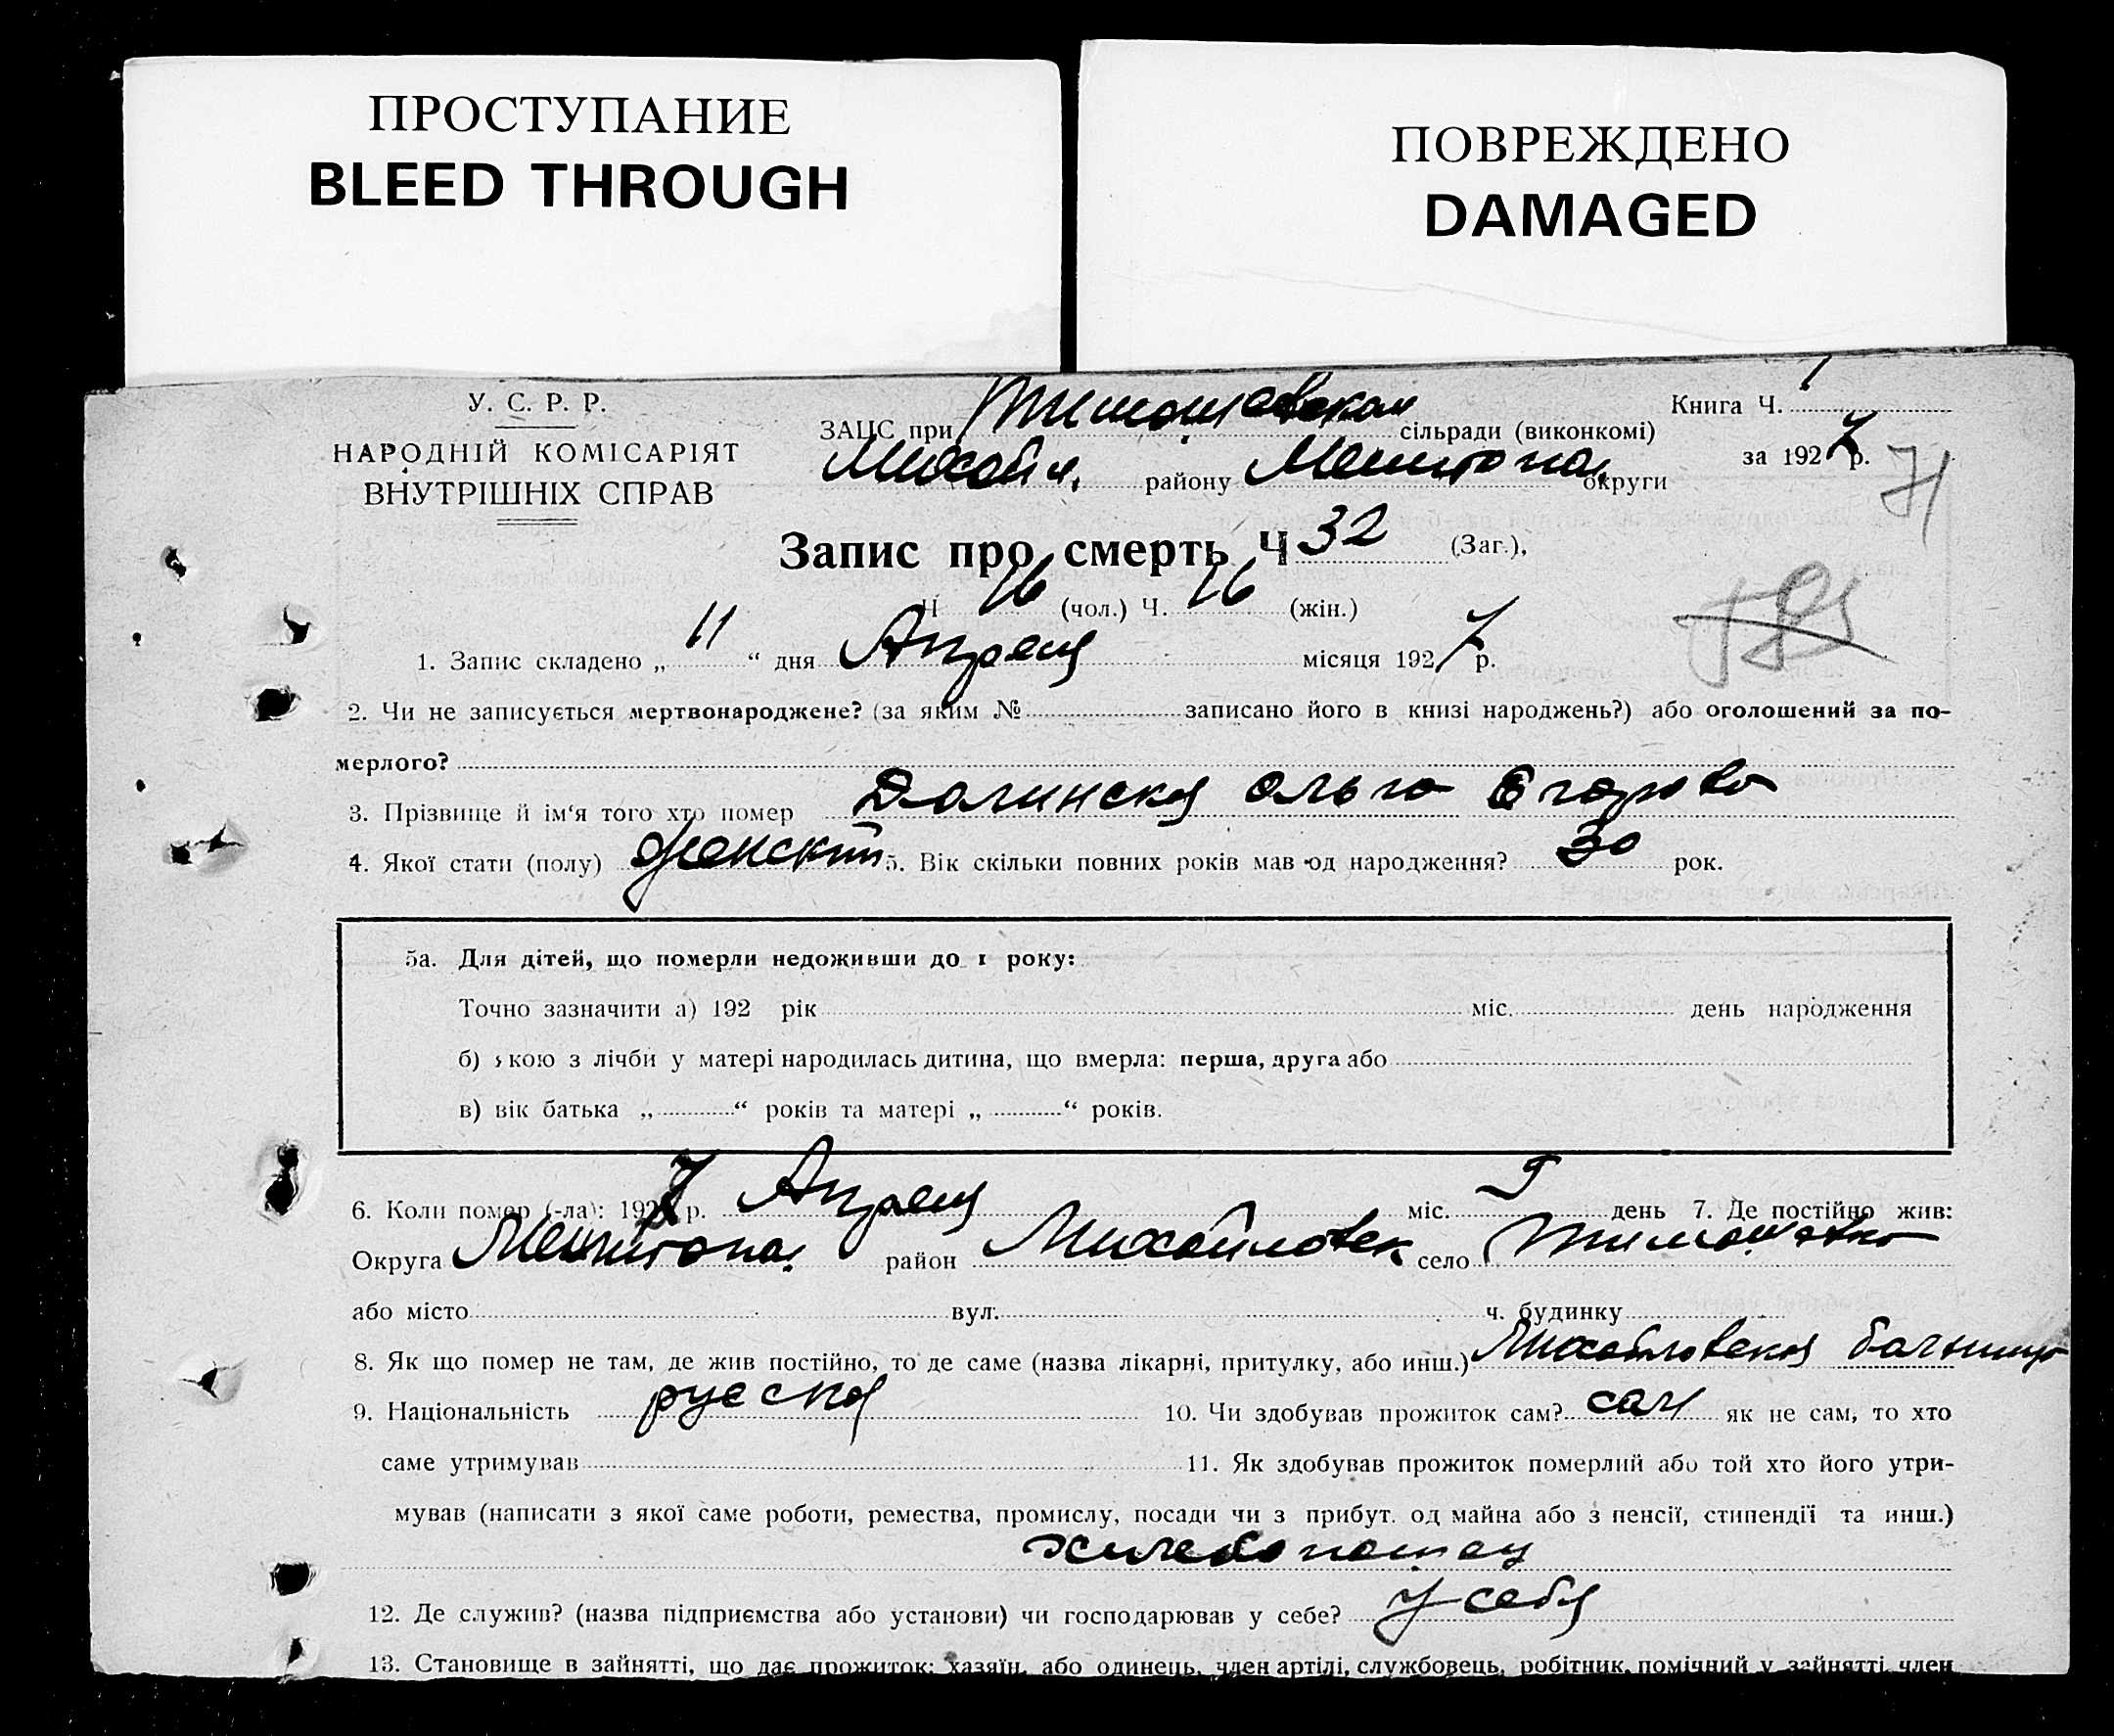 ПРОСТУПАНИЕ
BLEED THROUGH
ПОВРЕЖДЕНО
DAMAGED
У. С. Р. Р.
НАРОДНІЙ КОМІСАРІЯТ
ВНУТРІШНІХ СПРАВ
ЗАЦС при Тимошовском сільради (виконкомі)
Михайл. району Мелитопол. округи
Книга Ч. 1
за 1927 р.
71
Запис про смерть Ч 32 (Заг.),
Ч 16 (чол.) Ч. 16 (жін.)
1. Запис складено „ 11 “ дня Апреля місяця 1927 р.
2. Чи не записується мертвонароджене? (за яким № записано його в книзі народжень?) або оголошений за по-
мерлого?
3. Прізвище й ім‘я того хто помер Долинская Ольга Егорова
4. Якої стати (полу) женский 5. Вік скільки повних років мав од народження? 30 рок.
5а. Для дітей, що померли недоживши до 1 року:
Точно зазначити а) 192 рік міс. день народження
б) якою з лічби у матері народилась дитина, що вмерла: перша, друга або
в) вік батька „ “ років та матері „ “ років.
6. Коли помер (-ла): 1927 р. Апреля міс. 9 день 7. Де постійно жив:
Округа Мелитопол. район Михайловск село Тимошовка
або місто вул. ч. будинку
8. Як що помер не там, де жив постійно, то де саме (назва лікарні, притулку, або инш.) Михайловская больница
9. Національність русская 10. Чи здобував прожиток сам? сам як не сам, то хто
саме утримував 11. Як здобував прожиток померлий або той хто його утри-
мував (написати з якої саме роботи, ремества, промислу, посади чи з прибут. од майна або з пенсії, стипендії та инш.)
хлебопашец
12. Де служив? (назва підприємства або установи) чи господарював у себе? у себя
13. Становище в зайнятті, що дає прожиток: хазяїн, або одинець, член артілі, службовець, робітник, помічний у зайнятті член